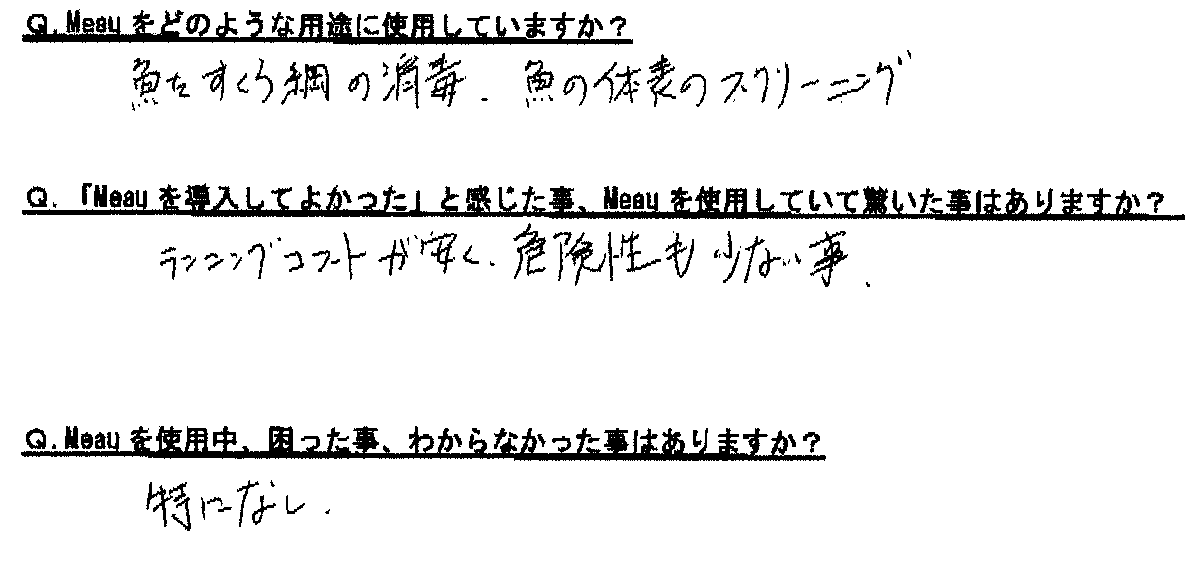 Q.Meauをどのような用途に使用していますか？
魚をすくう網の消毒．魚の体表のスクリーニング
Q.「Meauを導入してよかった」と感じた事、Meauを使用していて驚いた事はありますか？
ランニングコストが安く．危険性も少ない事．
Q.Meauを使用中、困った事、わからなかった事はありますか？
特になし．